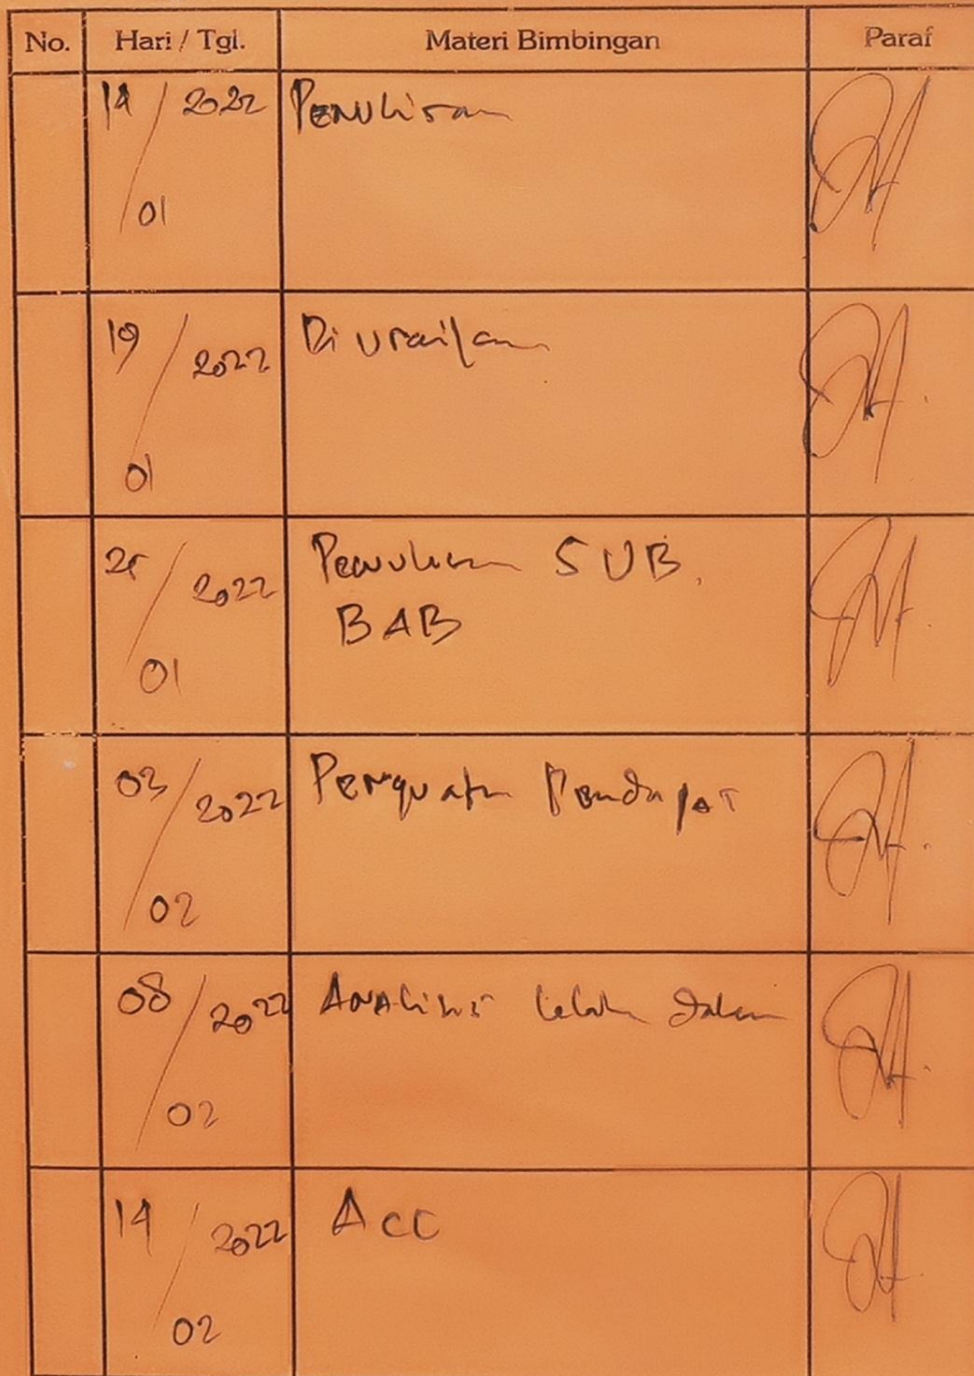 No. Hari / Tgl. Materi Bimbingan Paraf
14 / 2022 Penulisan
01
19 / 2022 Di uraikan
01
/ 2022 Penulisan SUB
01 BAB
03 / 2022 Penguatan Pendapat
02
08 / 2022 Analisis lebih dalam
02
14 / 2022 Acc
02